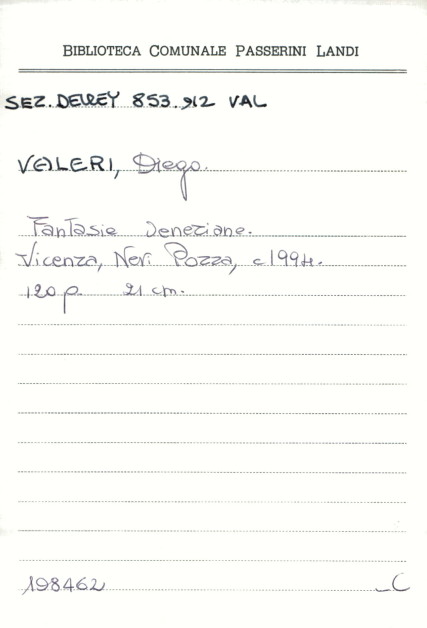 BIBLIOTECA COMUNALE PASSERINI LANDI
SEZ. DEWEY 853.912 VAL
VALERI, Diego.
Fantasie Veneziane.
Vicenza, Neri Pozza, c1994.
120 p. 21 cm.
198462 _C